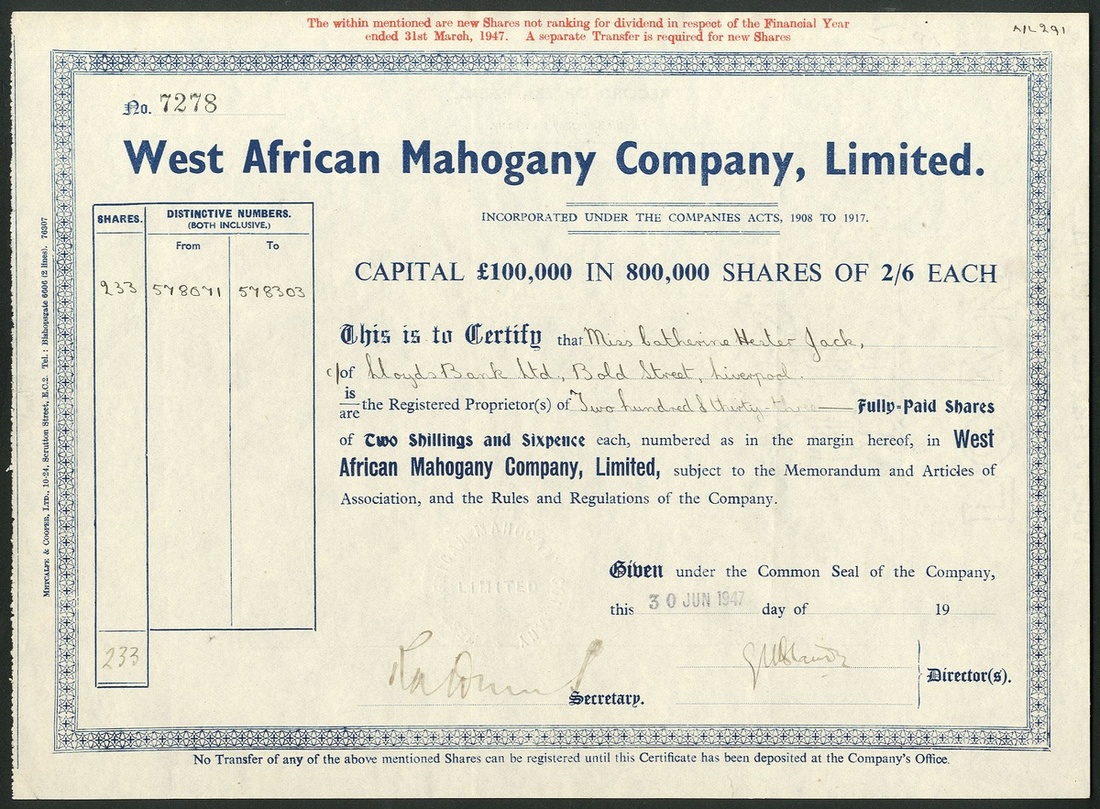 The within mentioned are new Shares not ranking for dividend in respect of the Financial Year
ended 31st March, 1947. A separate Transfer is required for new Shares
No. 7278
West African Mahogany Company, Limited.
INCORPORATED UNDER THE COMPANIES ACTS, 1908 TO 1917.
CAPITAL £100,000 IN 800,000 SHARES OF 2/6 EACH
SHARES. DISTINCTIVE NUMBERS.
(BOTH INCLUSIVE.)
From To
233 578071 578303
233
This is to Certify that Miss Catherine Hester Jack,
c/of Lloyds Bank Ltd., Bold Street, Liverpool.
is
are the Registered Proprietor(s) of Two hundred & thirty-three Fully-Paid Shares
of Two Shillings and Sixpence each, numbered as in the margin hereof, in West
African Mahogany Company, Limited, subject to the Memorandum and Articles of
Association, and the Rules and Regulations of the Company.
MAHOGANY
LIMITED
Given under the Common Seal of the Company,
this 30 JUN 1947 day of 19
Secretary.
Director(s).
No Transfer of any of the above mentioned Shares can be registered until this Certificate has been deposited at the Company's Office.
METCALFE & COOPER, LTD., 10-24, Scrutton Street, E.C.2. Tel.: Bishopsgate 6606 (2 lines). 76307